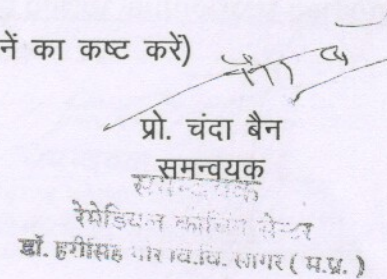 नें का कष्ट करें)
प्रो. चंदा बैन
समन्वयक
समन्वयक
रेमेडियल कोचिंग सेन्टर
डॉ. हरीसिंह गौर वि.वि. सागर ( म.प्र. )